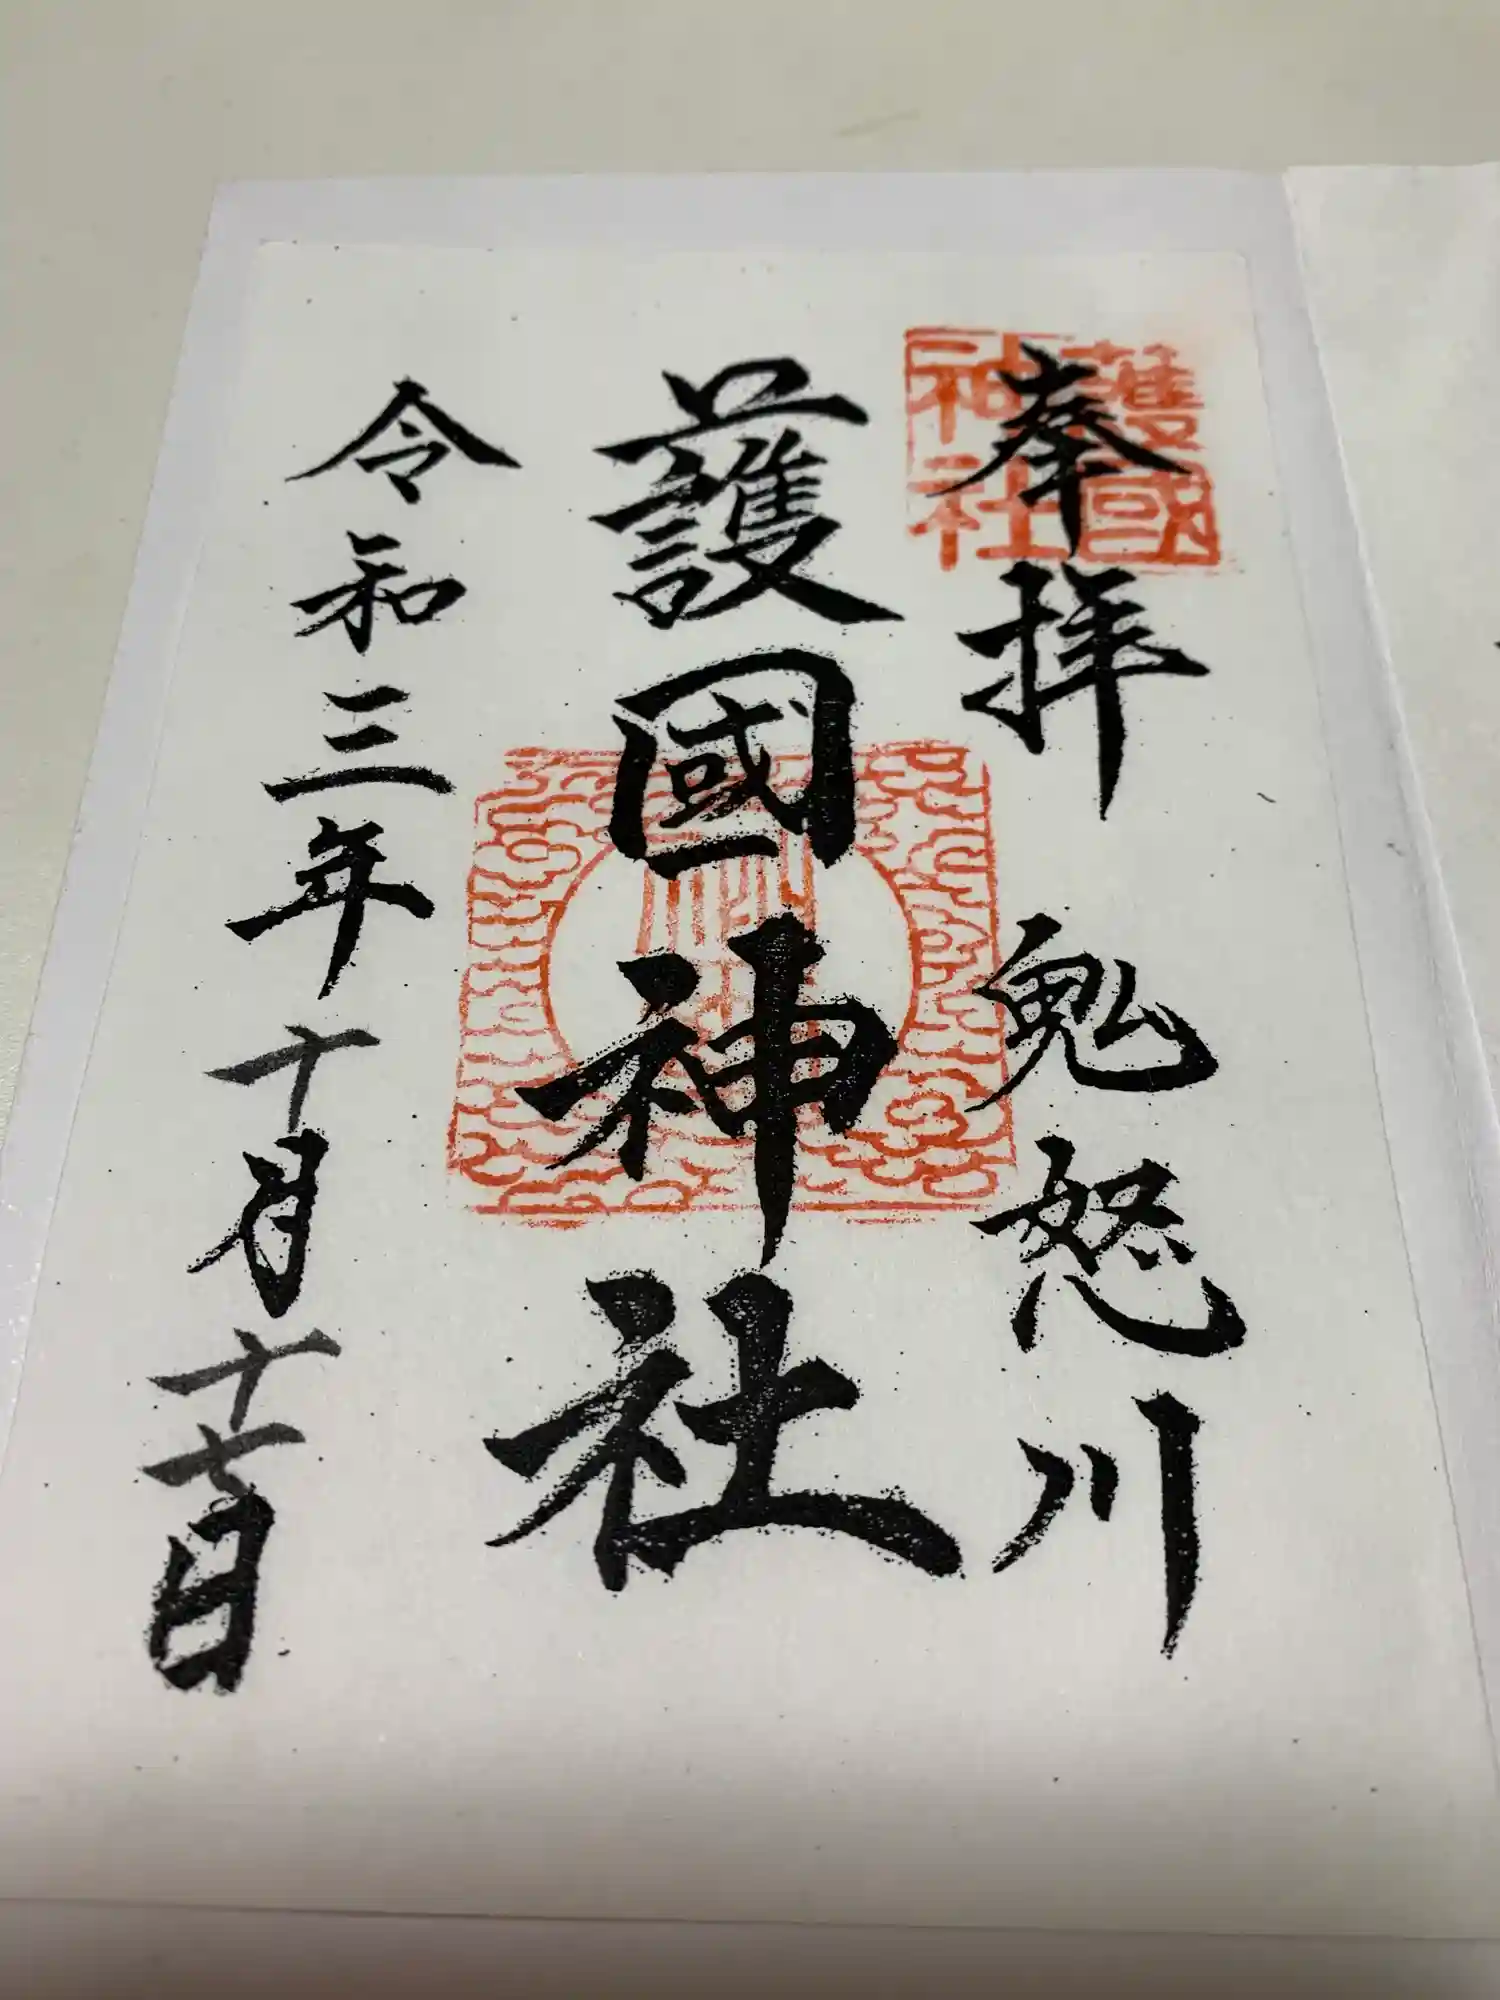 奉拝 鬼怒川
護國神社
令和三年十月十七日
護國
神社